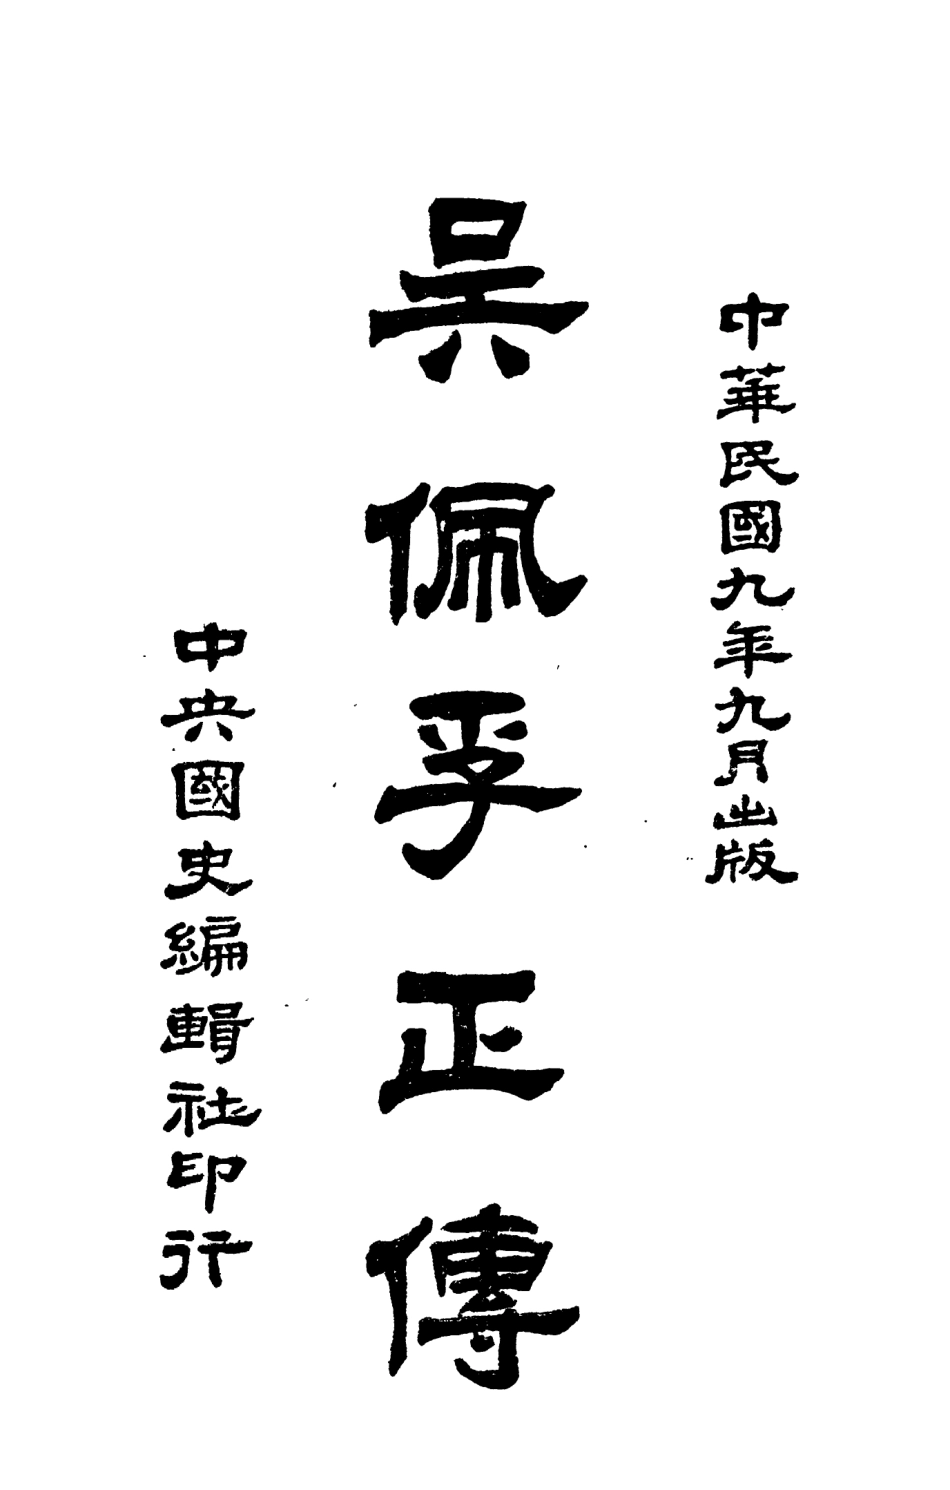 中華民國九年九月出版
吳佩孚正傳
中央國史編輯社印行